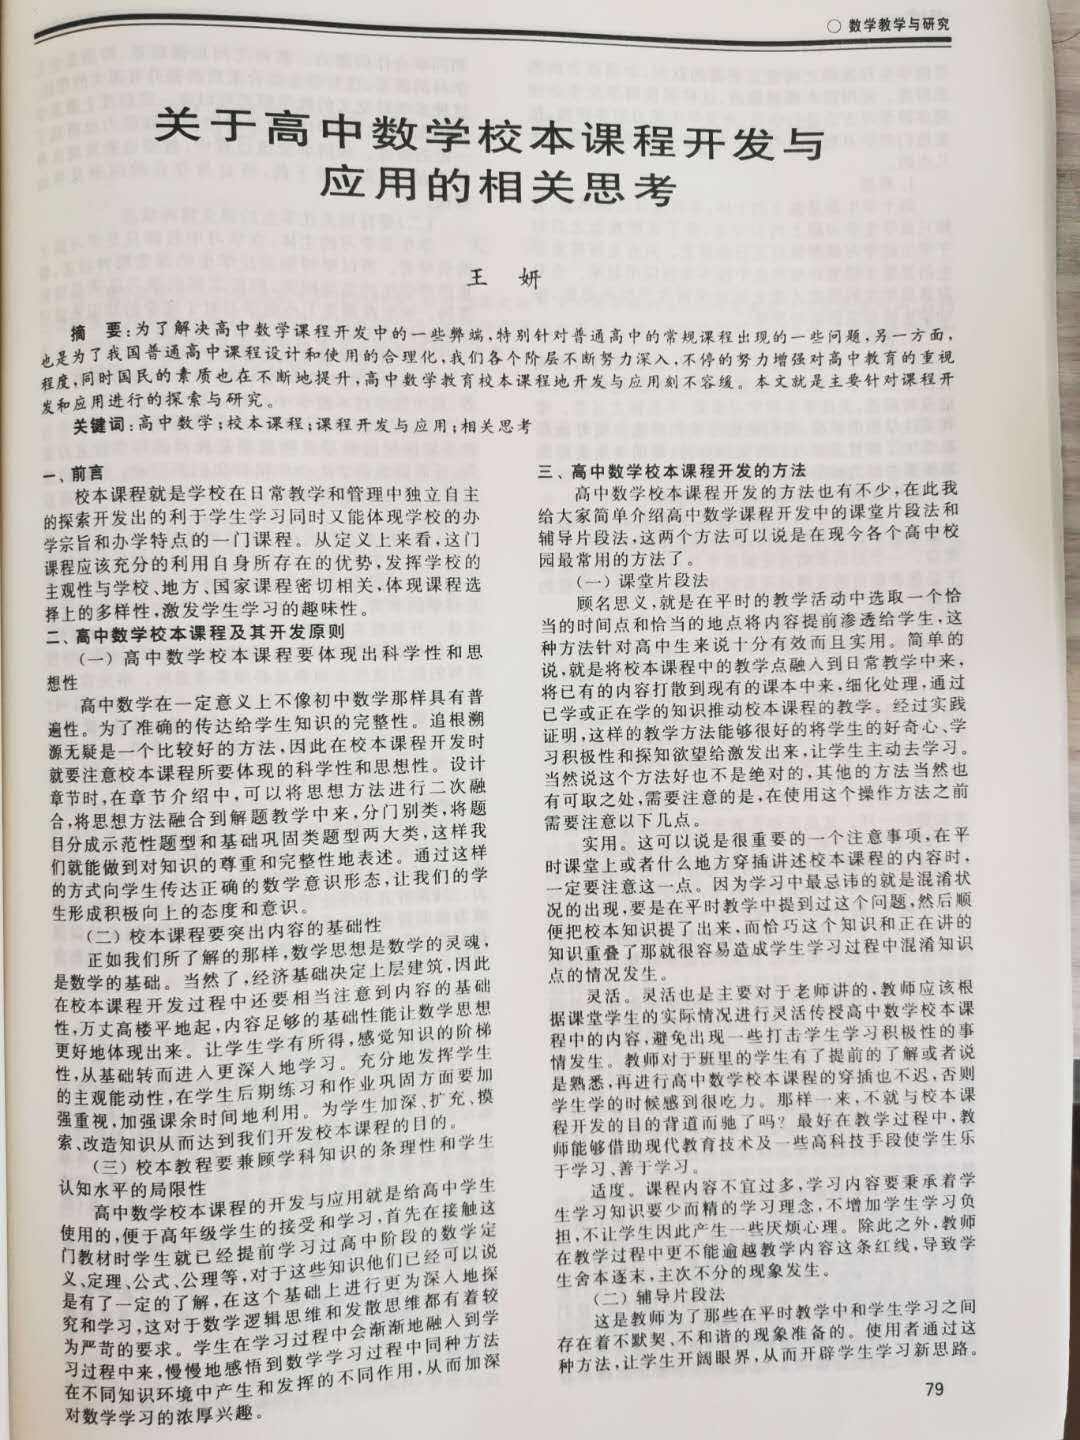 ○ 数学教学与研究
关于高中数学校本课程开发与
应用的相关思考
王 妍
摘 要:为了解决高中数学课程开发中的一些弊端,特别针对普通高中的常规课程出现的一些问题,另一方面,
也是为了我国普通高中课程设计和使用的合理化,我们各个阶层不断努力深入,不停的努力增强对高中教育的重视
程度,同时国民的素质也在不断地提升,高中数学教育校本课程地开发与应用刻不容缓。本文就是主要针对课程开
发和应用进行的探索与研究。
关键词:高中数学;校本课程;课程开发与应用;相关思考
一、前言
校本课程就是学校在日常教学和管理中独立自主
的探索开发出的利于学生学习同时又能体现学校的办
学宗旨和办学特点的一门课程。从定义上来看,这门
课程应该充分的利用自身所存在的优势,发挥学校的
主观性与学校、地方、国家课程密切相关,体现课程选
择上的多样性,激发学生学习的趣味性。
二、高中数学校本课程及其开发原则
(一)高中数学校本课程要体现出科学性和思
想性
高中数学在一定意义上不像初中数学那样具有普
遍性。为了准确的传达给学生知识的完整性。追根溯
源无疑是一个比较好的方法,因此在校本课程开发时
就要注意校本课程所要体现的科学性和思想性。设计
章节时,在章节介绍中,可以将思想方法进行二次融
合,将思想方法融合到解题教学中来,分门别类,将题
目分成示范性题型和基础巩固类题型两大类,这样我
们就能做到对知识的尊重和完整性地表述。通过这样
的方式向学生传达正确的数学意识形态,让我们的学
生形成积极向上的态度和意识。
(二)校本课程要突出内容的基础性
正如我们所了解的那样,数学思想是数学的灵魂,
是数学的基础。当然了,经济基础决定上层建筑,因此
在校本课程开发过程中还要相当注意到内容的基础
性,万丈高楼平地起,内容足够的基础性能让数学思想
更好地体现出来。让学生学有所得,感觉知识的阶梯
性,从基础转而进入更深入地学习。充分地发挥学生
的主观能动性,在学生后期练习和作业巩固方面要加
强重视,加强课余时间地利用。为学生加深、扩充、摸
索、改造知识从而达到我们开发校本课程的目的。
(三)校本教程要兼顾学科知识的条理性和学生
认知水平的局限性
高中数学校本课程的开发与应用就是给高中学生
使用的,便于高年级学生的接受和学习,首先在接触这
门教材时学生就已经提前学习过高中阶段的数学定
义、定理、公式、公理等,对于这些知识他们已经可以说
是有了一定的了解,在这个基础上进行更为深入地探
究和学习,这对于数学逻辑思维和发散思维都有着较
为严苛的要求。学生在学习过程中会渐渐地融入到学
习过程中来,慢慢地感悟到数学学习过程中同种方法
在不同知识环境中产生和发挥的不同作用,从而加深
对数学学习的浓厚兴趣。
三、高中数学校本课程开发的方法
高中数学校本课程开发的方法也有不少,在此我
给大家简单介绍高中数学课程开发中的课堂片段法和
辅导片段法,这两个方法可以说是在现今各个高中校
园最常用的方法了。
(一)课堂片段法
顾名思义,就是在平时的教学活动中选取一个恰
当的时间点和恰当的地点将内容提前渗透给学生,这
种方法针对高中生来说十分有效而且实用。简单的
说,就是将校本课程中的教学点融入到日常教学中来,
将已有的内容打散到现有的课本中来,细化处理,通过
已学或正在学的知识推动校本课程的教学。经过实践
证明,这样的教学方法能够很好的将学生的好奇心、学
习积极性和探知欲望给激发出来,让学生主动去学习。
当然说这个方法好也不是绝对的,其他的方法当然也
有可取之处,需要注意的是,在使用这个操作方法之前
需要注意以下几点。
实用。这可以说是很重要的一个注意事项,在平
时课堂上或者什么地方穿插讲述校本课程的内容时,
一定要注意这一点。因为学习中最忌讳的就是混淆状
况的出现,要是在平时教学中提到过这个问题,然后顺
便把校本知识提了出来,而恰巧这个知识和正在讲的
知识重叠了那就很容易造成学生学习过程中混淆知识
点的情况发生。
灵活。灵活也是主要对于老师讲的,教师应该根
据课堂学生的实际情况进行灵活传授高中数学校本课
程中的内容,避免出现一些打击学生学习积极性的事
情发生。教师对于班里的学生有了提前的了解或者说
是熟悉,再进行高中数学校本课程的穿插也不迟,否则
学生学的时候感到很吃力。那样一来,不就与校本课
程开发的目的背道而驰了吗?最好在教学过程中,教
师能够借助现代教育技术及一些高科技手段使学生乐
于学习、善于学习。
适度。课程内容不宜过多,学习内容要秉承着学
生学习知识要少而精的学习理念,不增加学生学习负
担,不让学生因此产生一些厌烦心理。除此之外,教师
在教学过程中更不能逾越教学内容这条红线,导致学
生舍本逐末,主次不分的现象发生。
(二)辅导片段法
这是教师为了那些在平时教学中和学生学习之间
存在着不默契、不和谐的现象准备的。使用者通过这
种方法,让学生开阔眼界,从而开辟学生学习新思路。
79